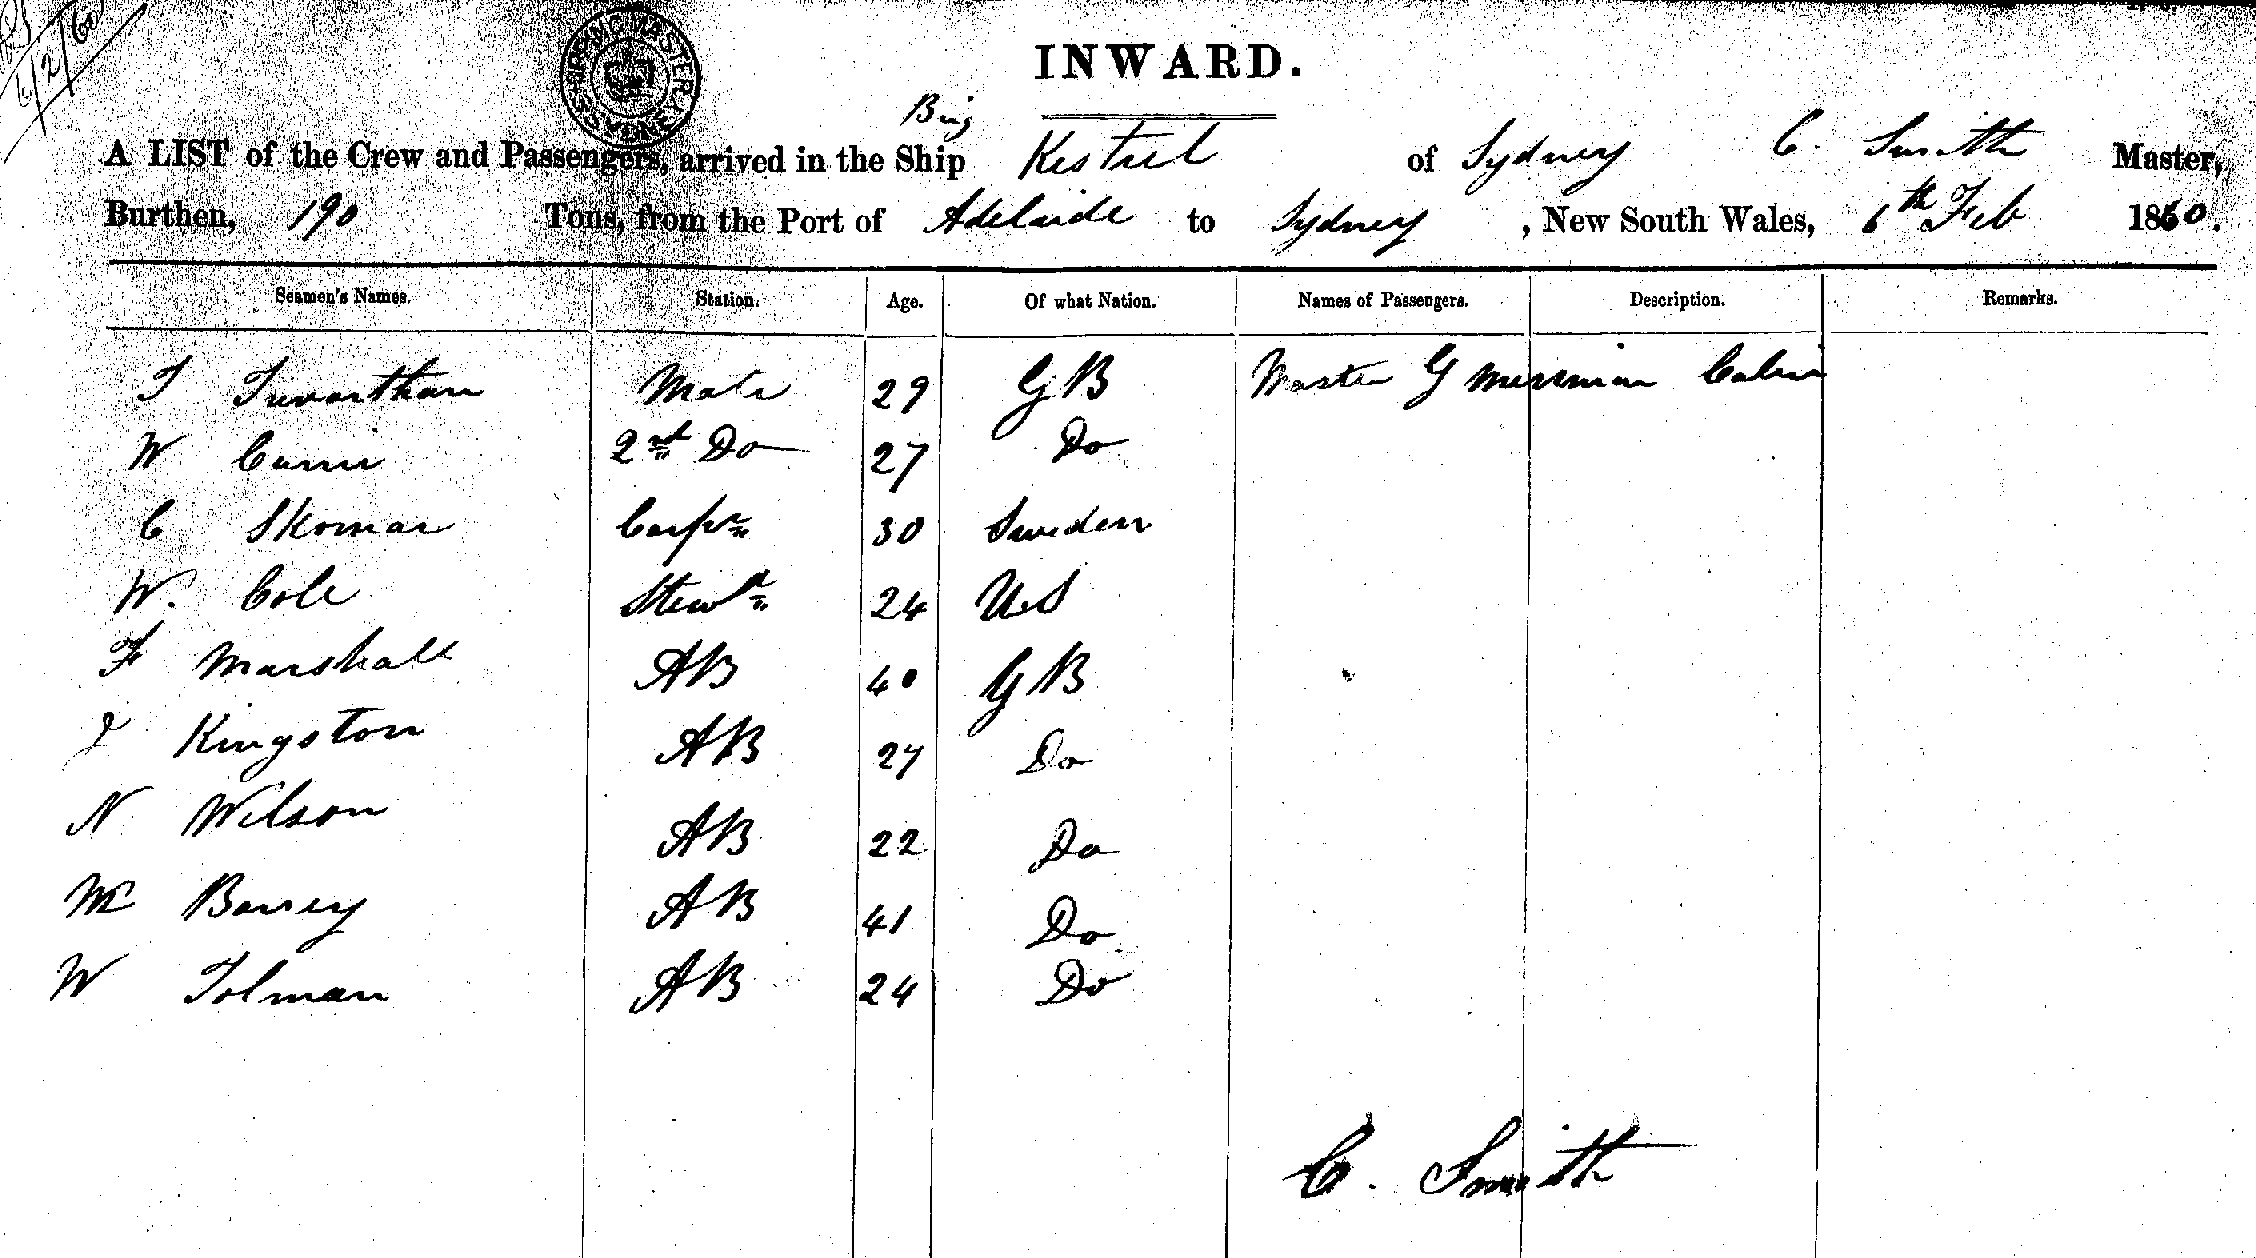 6/2/60
SHIPPING MASTER SYDNEY
INWARD.
Brig
A LIST of the Crew and Passengers, arrived in the Ship Kestrel of Sydney C. Smith Master,
Burthen, 190 Tons, from the Port of Adelaide to Sydney, New South Wales, 6th Feb 1860.
Seamen's Names. Station. Age. Of what Nation. Names of Passengers. Description. Remarks.
T Trevarthan Mate 29 GB Master G Merriman Cabin
W 2nd Do 27 Do
C Skoman Carpr 30 Sweden
W. Cole Stewd 24 US
F Marshall AB 40 GB
Kingston AB 27 Do
N Wilson AB 22 Do
Wm AB 41 Do
W Tolman AB 24 Do
C. Smith